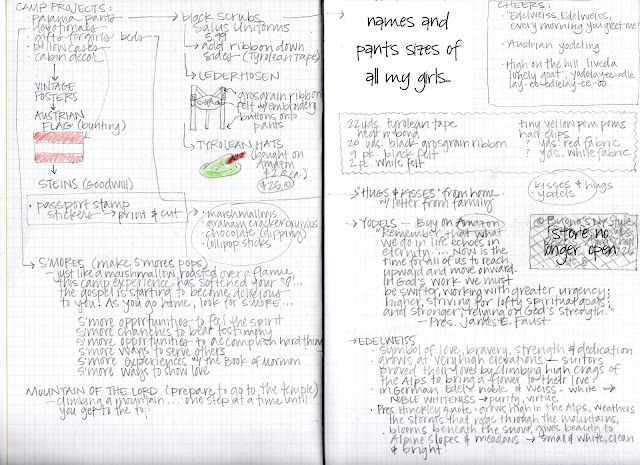 CAMP PROJECTS:
· pajama pants
· devotionals
· gifts for girls' beds
· pillowcases
· cabin decor
VINTAGE
POSTERS
AUSTRIAN
FLAG (bunting)
STEINS (Goodwill)
· passport stamp
stickers → print & cut
→ black scrubs
Salus Uniforms
→ add ribbon down
sides (Tyrolean tape)
→ LEDERHOSEN
grosgrain ribbon
felt w/ embroidery
buttons onto
pants
→ TYROLEAN HATS
(bought on
Amazon
$25.00
· marshmallows
· graham cracker crumbs
· chocolate (dipping)
· lollipop sticks
→ S'MORES (make s'mores pops)
- just like a marshmallow roasted over a flame
this camp experience has softened your ♡...
the gospel is starting to become delicious
to you! As you go home, look for S'MORE...
S'more opportunities to feel the spirit
S'more chances to bear testimony
S'more opportunities to accomplish hard things
S'more ways to serve others
S'more experiences w/ the Book of Mormon
S'more ways to show love
MOUNTAIN OF THE LORD (prepare to go to the temple)
- climbing a mountain... one step at a time until
you get to the top
names and
pants sizes of
all my girls...
CHEERS:
· "Edelweiss, Edelweiss,
every morning you greet me"
· Austrian yodeling
· High on the hill lived a
lonely goat, yodelayee-odle
lay-ee-edlelay-ee-oo.
22 yds. tyrolean tape
heat n bond
20 yds. black grosgrain ribbon
9 pt. black felt
2 ft. white felt
tiny yellow pom poms
hair clips
? yds. red fabric
? yds. white fabric
→ "HUGS & KISSES" from home
w/ letter from family
kisses & hugs
yodels
→ YODELS - Buy on Amazon
"Remember, that what
we do in life echoes in
eternity ... Now is the
time for all of us to reach
upward and move onward.
In God's work we must
be swifter, working with greater urgency;
higher, striving for lofty spiritual goals;
and stronger, relying on God's strength."
- Pres. James E. Faust
!store no
longer open
→ EDELWEISS
· symbol of love, bravery, strength & dedication
· grows at very high elevations - suitors
proved their love by climbing high crags of
the Alps to bring a flower to their love!
· in German, Edel = noble & weiss = white →
NOBLE WHITENESS → purity, virtue
· Pres. Hinckley quote - grows high in the Alps, weathers
the storms that rage through the mountains,
blooms beneath the snow, gives beauty to
Alpine slopes & meadows → small & white, clean
& bright.